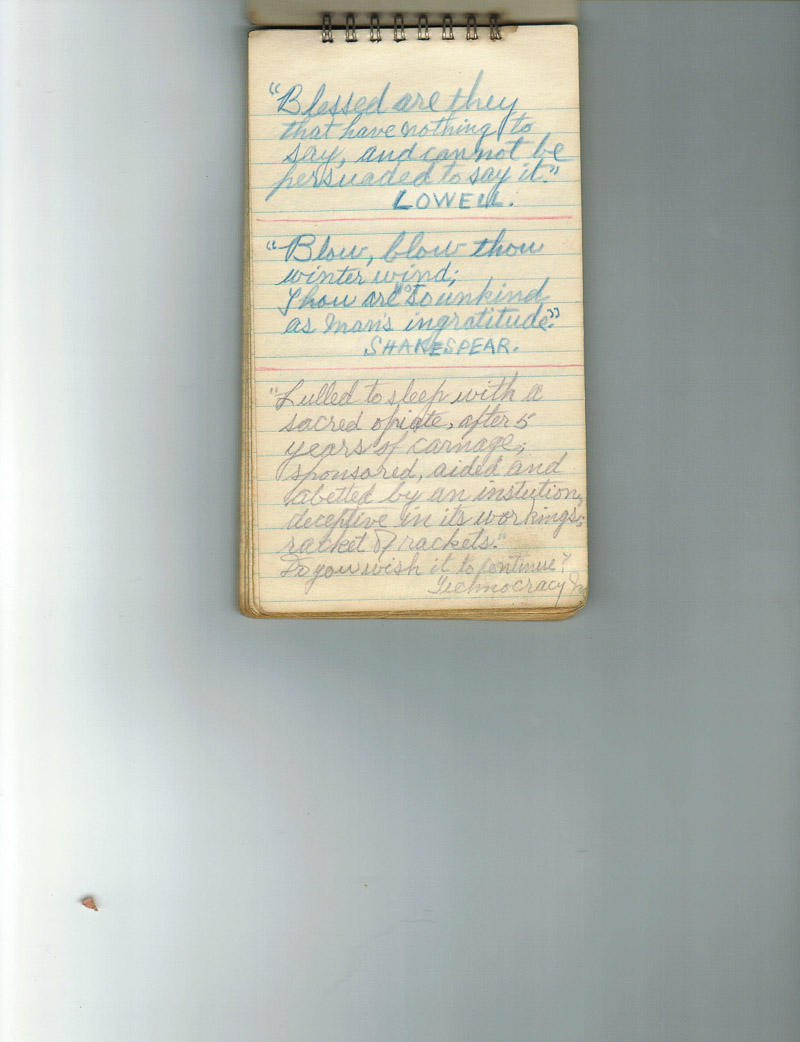 "Blessed are they
that have nothing to
say, and cannot be
persuaded to say it."
LOWELL.
"Blow, blow thou
winter wind;
Thou are "not" so unkind
as man's ingratitude."
SHAKESPEAR.
"Lulled to sleep with a
sacred opiate, after 5
years of carnage;
sponsored, aided and
abetted by an instution,
deceptive in its workings;
racket of rackets."
Do you wish it to continue?
Technocracy